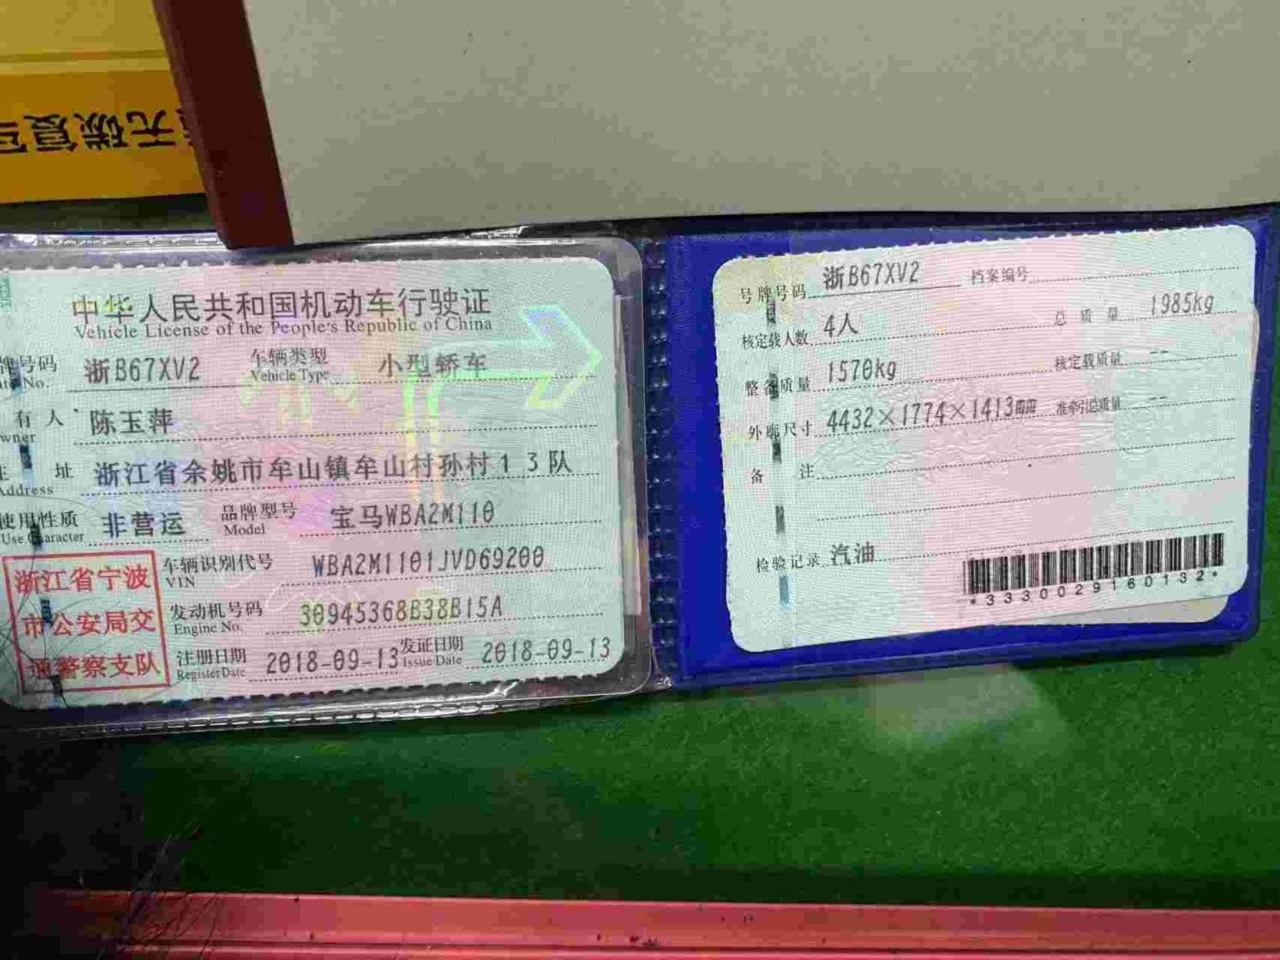 无碳复写
中华人民共和国机动车行驶证
Vehicle License of the People's Republic of China
牌号码 浙B67XV2 车辆类型 小型轿车
No. Vehicle Type
有人 陈玉萍
wner
址 浙江省余姚市牟山镇牟山村孙村13队
Address
使用性质 非营运 品牌型号 宝马WBA2M110
Use Character Model
浙江省宁波
市公安局交
通警察支队
车辆识别代号 WBA2M1101JVD69200
VIN
发动机号码 30945368B38B15A
Engine No.
注册日期 2018-09-13 发证日期 2018-09-13
Register Date Issue Date
号牌号码 浙B67XV2 档案编号
核定载人数 4人 总质量 1985kg
整备质量 1570kg 核定载质量 --
外廓尺寸 4432×1774×1413mm 准牵引总质量 --
备注
检验记录 汽油
*3330029160132*